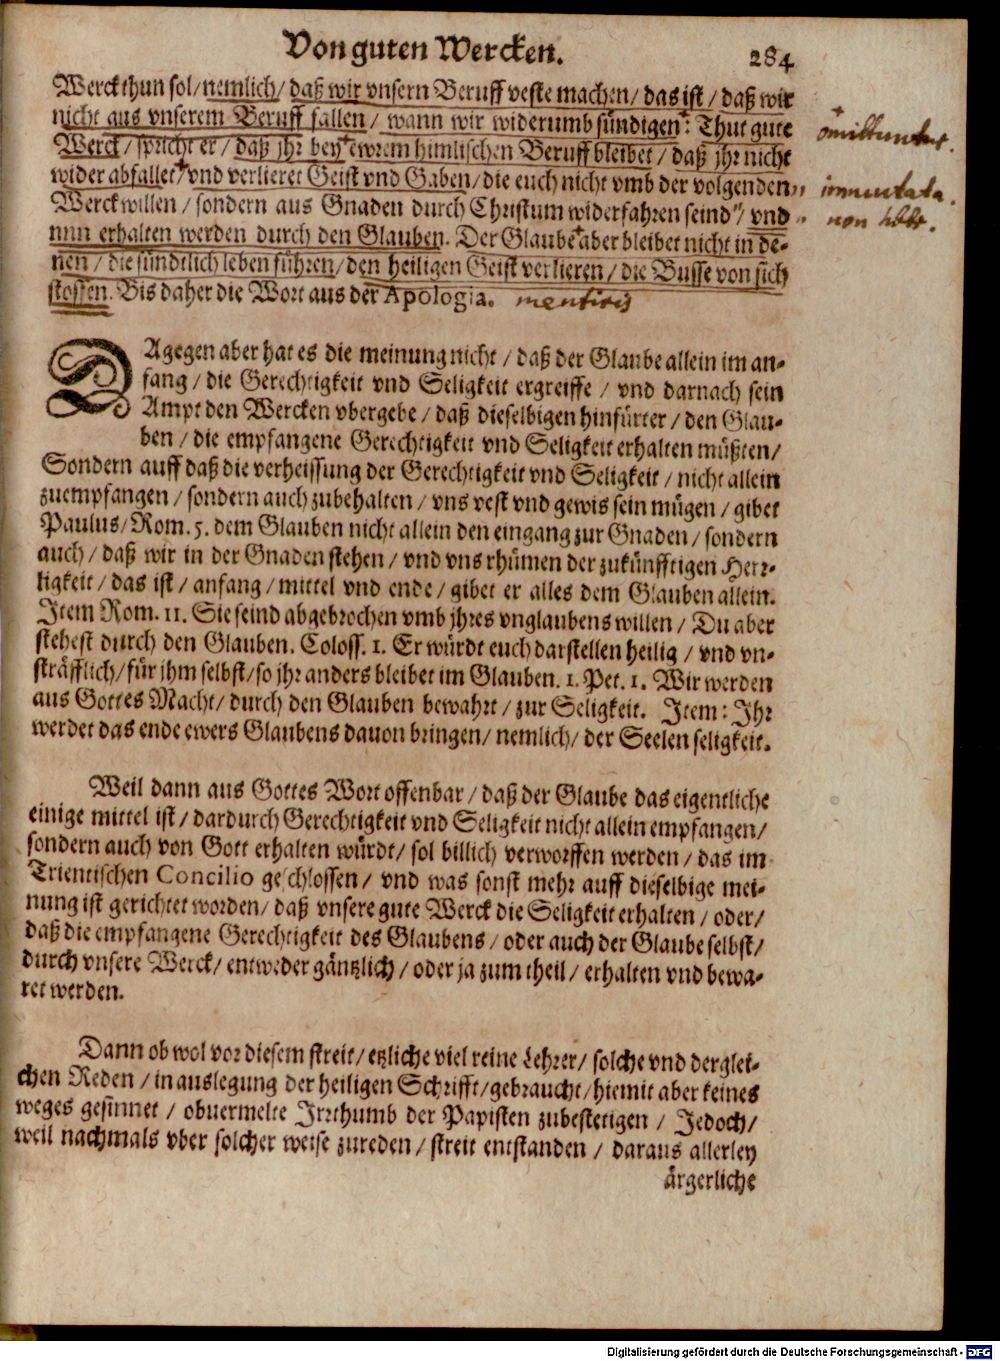 Von guten Wercken.
284
Werck thun sol/ nemlich/ daß wir vnsern Beruff veste machen/ das ist/ daß wir
nicht aus vnserem Beruff fallen/ wann wir widerumb sündigen: Thut gute
omittuntur.
Werck/ spricht er/ daß jhr bey ewrem himlischen Beruff bleibet/ daß jhr nicht
wider abfallet/ vnd verlieret Geist vnd Gaben/ die euch nicht vmb der volgenden
immutata.
Werck willen/ sondern aus Gnaden durch Christum widerfahren seind/ vnd
non
nun erhalten werden durch den Glauben. Der Glaube aber bleibet nicht in de-
nen/ die sündtlich leben führen/ den heiligen Geist verlieren/ die Busse von sich
stossen. Bis daher die Wort aus der Apologia. mentiris
DAgegen aber hat es die meinung nicht/ daß der Glaube allein im an-
fang/ die Gerechtigkeit vnd Seligkeit ergreiffe/ vnd darnach sein
Ampt den Wercken vbergebe/ daß dieselbigen hinfürter/ den Glau-
ben/ die empfangene Gerechtigkeit vnd Seligkeit erhalten müßten/
Sondern auff daß die verheissung der Gerechtigkeit vnd Seligkeit/ nicht allein
zuempfangen/ sondern auch zubehalten/ vns vest vnd gewis sein mügen/ gibet
Paulus/ Rom. 5. dem Glauben nicht allein den eingang zur Gnaden/ sondern
auch/ daß wir in der Gnaden stehen/ vnd vns rhümen der zukünfftigen Herr-
ligkeit/ das ist/ anfang/ mittel vnd ende/ gibet er alles dem Glauben allein.
Item Rom. 11. Sie seind abgebrochen vmb jhres vnglaubens willen/ Du aber
stehest durch den Glauben. Coloss. 1. Er würdt euch darstellen heilig/ vnd vn-
sträfflich/ für jhm selbst/ so jhr anders bleibet im Glauben. 1. Pet. 1. Wir werden
aus Gottes Macht/ durch den Glauben bewahrt/ zur Seligkeit. Item: Ihr
werdet das ende ewers Glaubens dauon bringen/ nemlich/ der Seelen seligkeit.
Weil dann aus Gottes Wort offenbar/ daß der Glaube das eigentliche
einige mittel ist/ dardurch Gerechtigkeit vnd Seligkeit nicht allein empfangen/
sondern auch von Gott erhalten würdt/ sol billich verworffen werden/ das im
Trientischen Concilio geschlossen/ vnd was sonst mehr auff dieselbige mei-
nung ist gerichtet worden/ daß vnsere gute Werck die Seligkeit erhalten/ oder/
daß die empfangene Gerechtigkeit des Glaubens/ oder auch der Glaube selbst/
durch vnsere Werck/ entweder gäntzlich/ oder ja zum theil/ erhalten vnd bewa-
ret werden.
Dann ob wol vor diesem streit/ etzliche viel reine Lehrer/ solche vnd derglei-
chen Reden/ in auslegung der heiligen Schrifft/ gebraucht/ hiemit aber keines
weges gesinnet/ obuermelte Irrthumb der Papisten zubestetigen/ Jedoch/
weil nachmals vber solcher weise zureden/ streit entstanden/ daraus allerley
ärgerliche
Digitalisierung gefördert durch die Deutsche Forschungsgemeinschaft - DFG